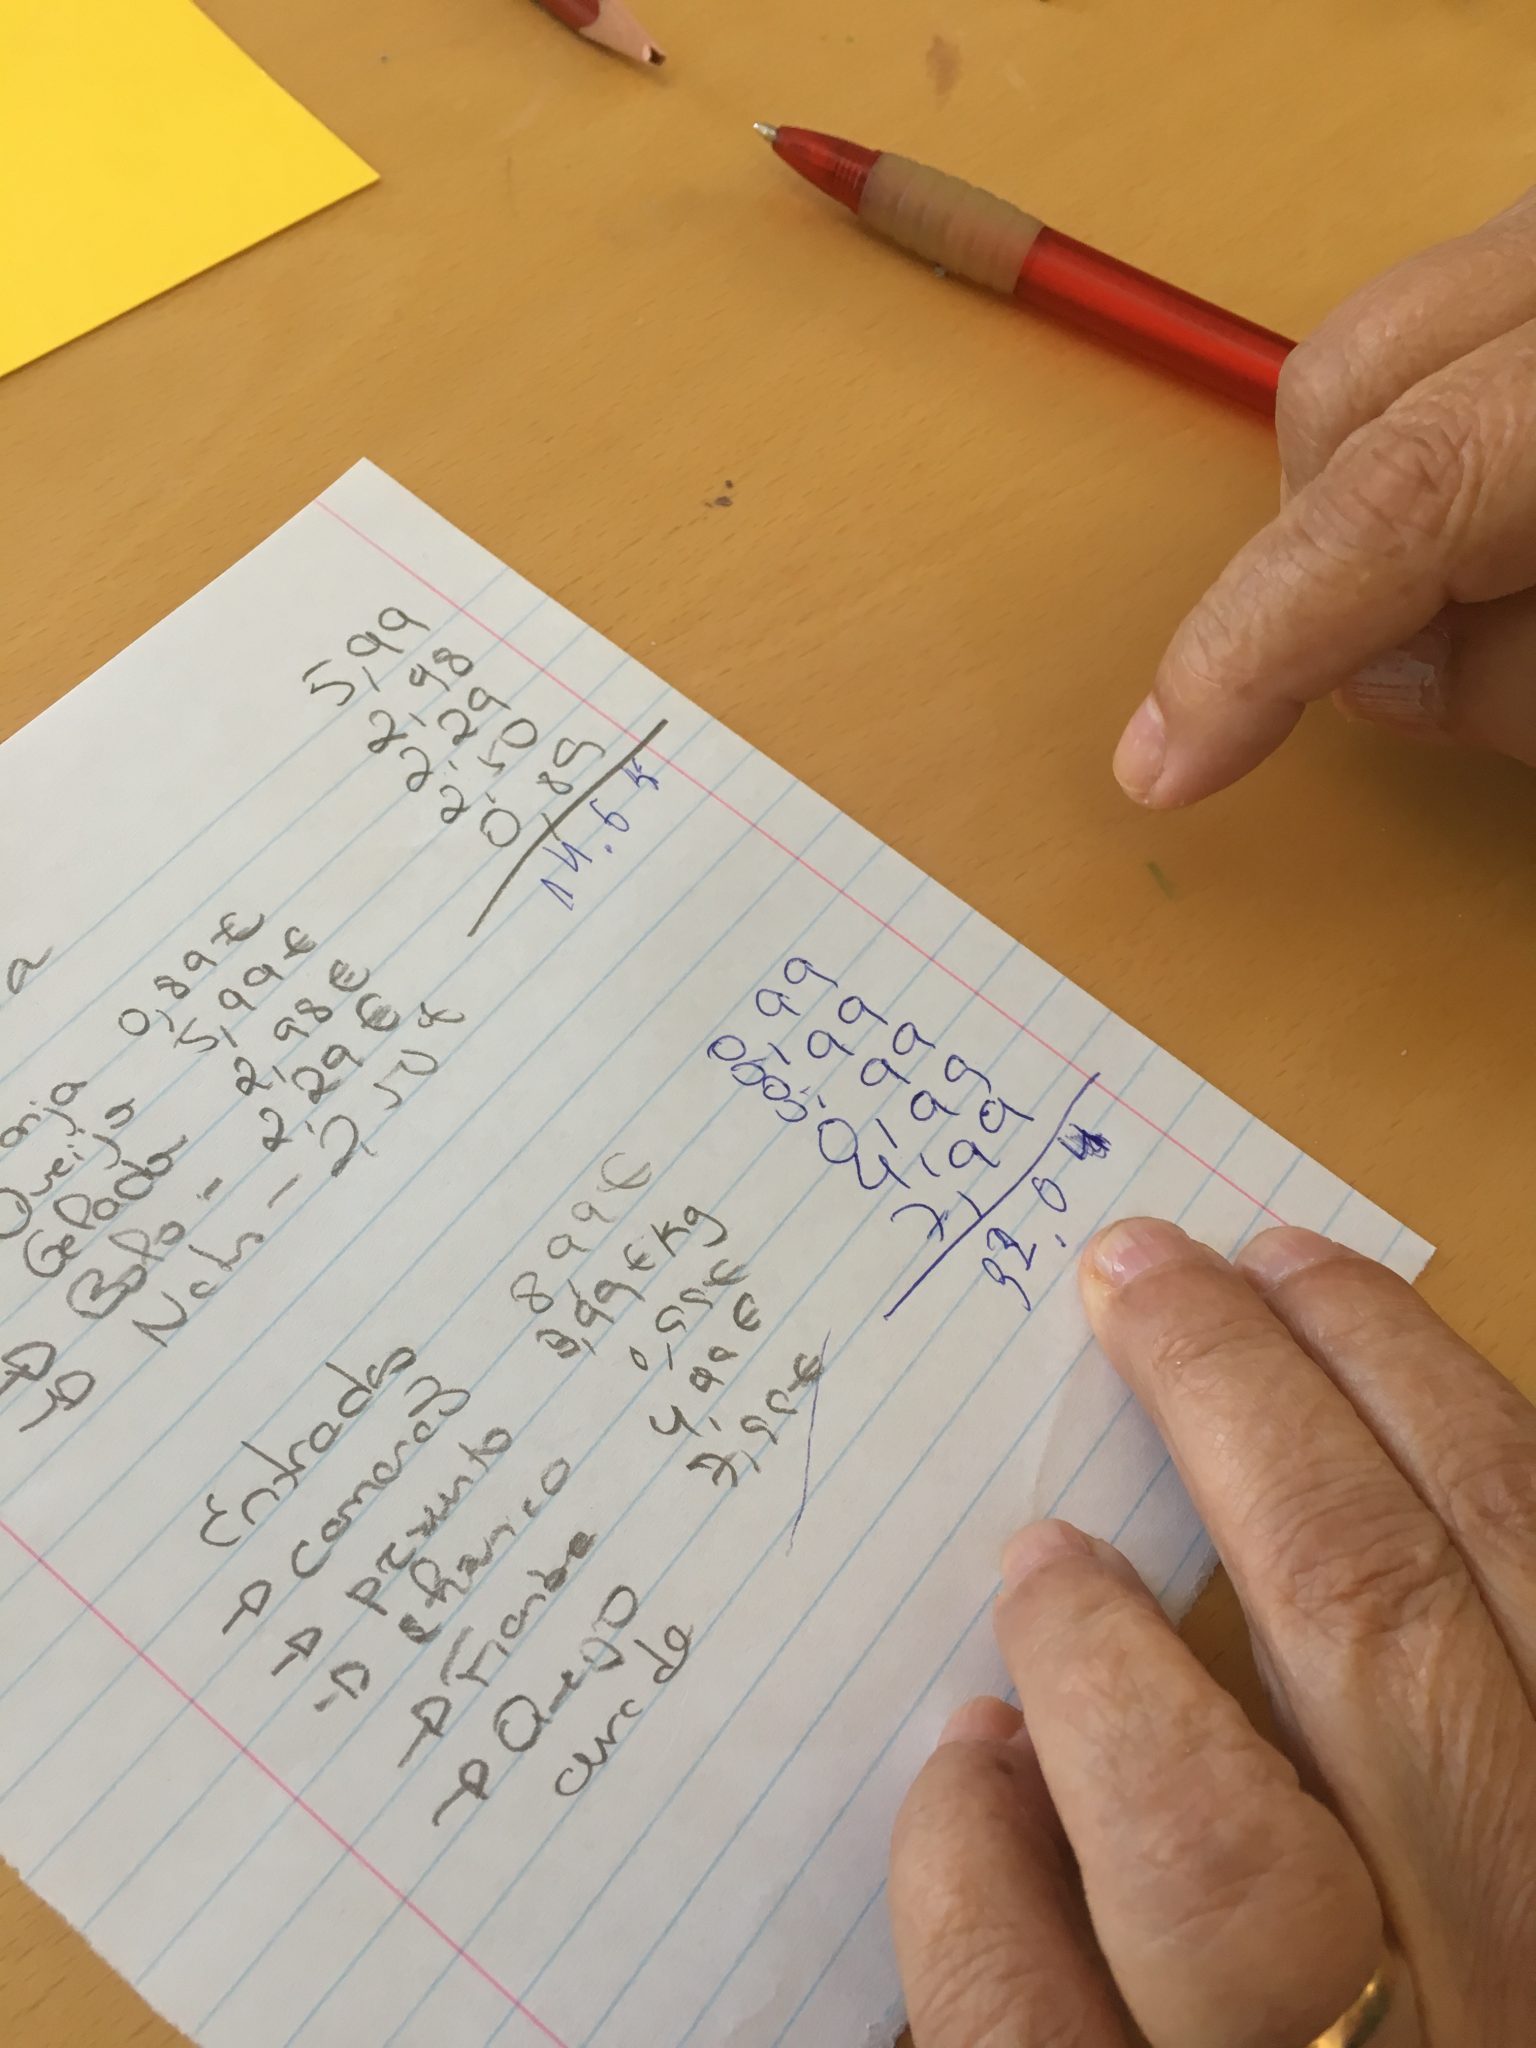 a
anja 0,89€
Oveija 5,99€
Gelada 2,98€
Bolo - 2,29€
Nata - 2,50€
5,99
2,98
2,29
2,50
0,89
14.65
Entrada
Camarão 8,99€
Presunto 3,99€Kg
chouriço 0,99€
Fiambre 4,99€
Queijo 7,99€
,99
,99
0,99
4,99
7,99